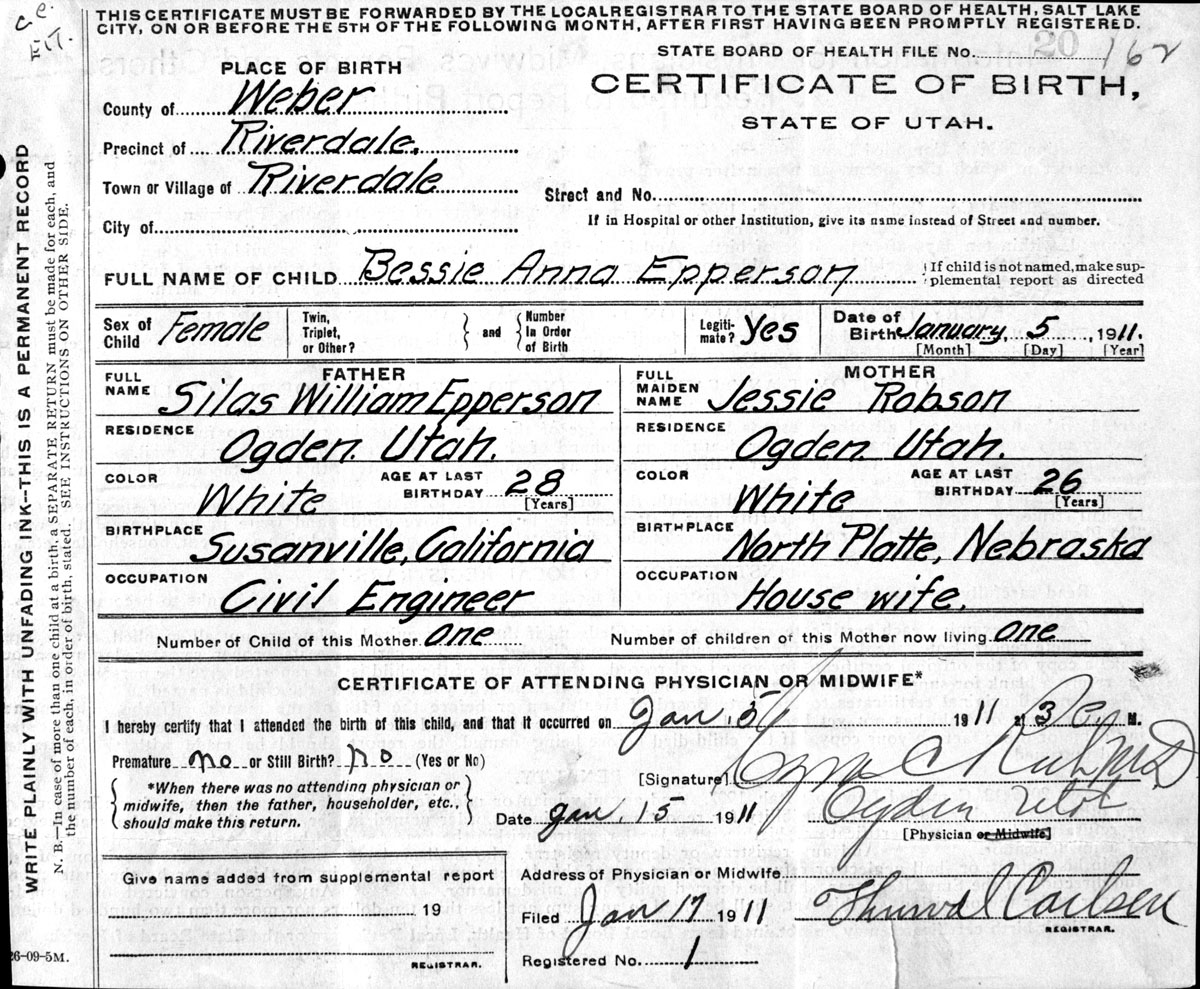 THIS CERTIFICATE MUST BE FORWARDED BY THE LOCAL REGISTRAR TO THE STATE BOARD OF HEALTH, SALT LAKE
CITY, ON OR BEFORE THE 5TH OF THE FOLLOWING MONTH, AFTER FIRST HAVING BEEN PROMPTLY REGISTERED.
STATE BOARD OF HEALTH FILE No. 20 162
PLACE OF BIRTH
CERTIFICATE OF BIRTH,
STATE OF UTAH.
County of Weber
Precinct of Riverdale.
Town or Village of Riverdale
Street and No.
City of
If in Hospital or other Institution, give its name instead of Street and number.
FULL NAME OF CHILD Bessie Anna Epperson
If child is not named, make sup-
plemental report as directed
Sex of Child Female
Twin, Triplet, or Other?
and
Number In Order of Birth
Legiti-mate? Yes
Date of Birth January, 5, 1911.
[Month] [Day] [Year]
FATHER
FULL NAME Silas William Epperson
RESIDENCE Ogden. Utah.
COLOR White AGE AT LAST BIRTHDAY 28 [Years]
BIRTHPLACE Susanville, California
OCCUPATION Civil Engineer
MOTHER
FULL MAIDEN NAME Jessie Robson
RESIDENCE Ogden Utah.
COLOR White AGE AT LAST BIRTHDAY 26 [Years]
BIRTHPLACE North Platte, Nebraska
OCCUPATION House wife.
Number of Child of this Mother one
Number of children of this Mother now living one
CERTIFICATE OF ATTENDING PHYSICIAN OR MIDWIFE*
I hereby certify that I attended the birth of this child, and that it occurred on Jan 5 1911 at 3 M.
Premature no or Still Birth? No (Yes or No)
[Signature]
*When there was no attending physician or
midwife, then the father, householder, etc.,
should make this return.
Date Jan 15 1911
Ogden Utah
[Physician or Midwife]
Give name added from supplemental report
19
REGISTRAR.
Address of Physician or Midwife.
Filed Jan 17 1911
REGISTRAR.
Registered No. 1
WRITE PLAINLY WITH UNFADING INK--THIS IS A PERMANENT RECORD
N. B.—In case of more than one child at a birth, a SEPARATE RETURN must be made for each, and
the number of each, in order of birth, stated. SEE INSTRUCTIONS ON OTHER SIDE.
26-09-5M.